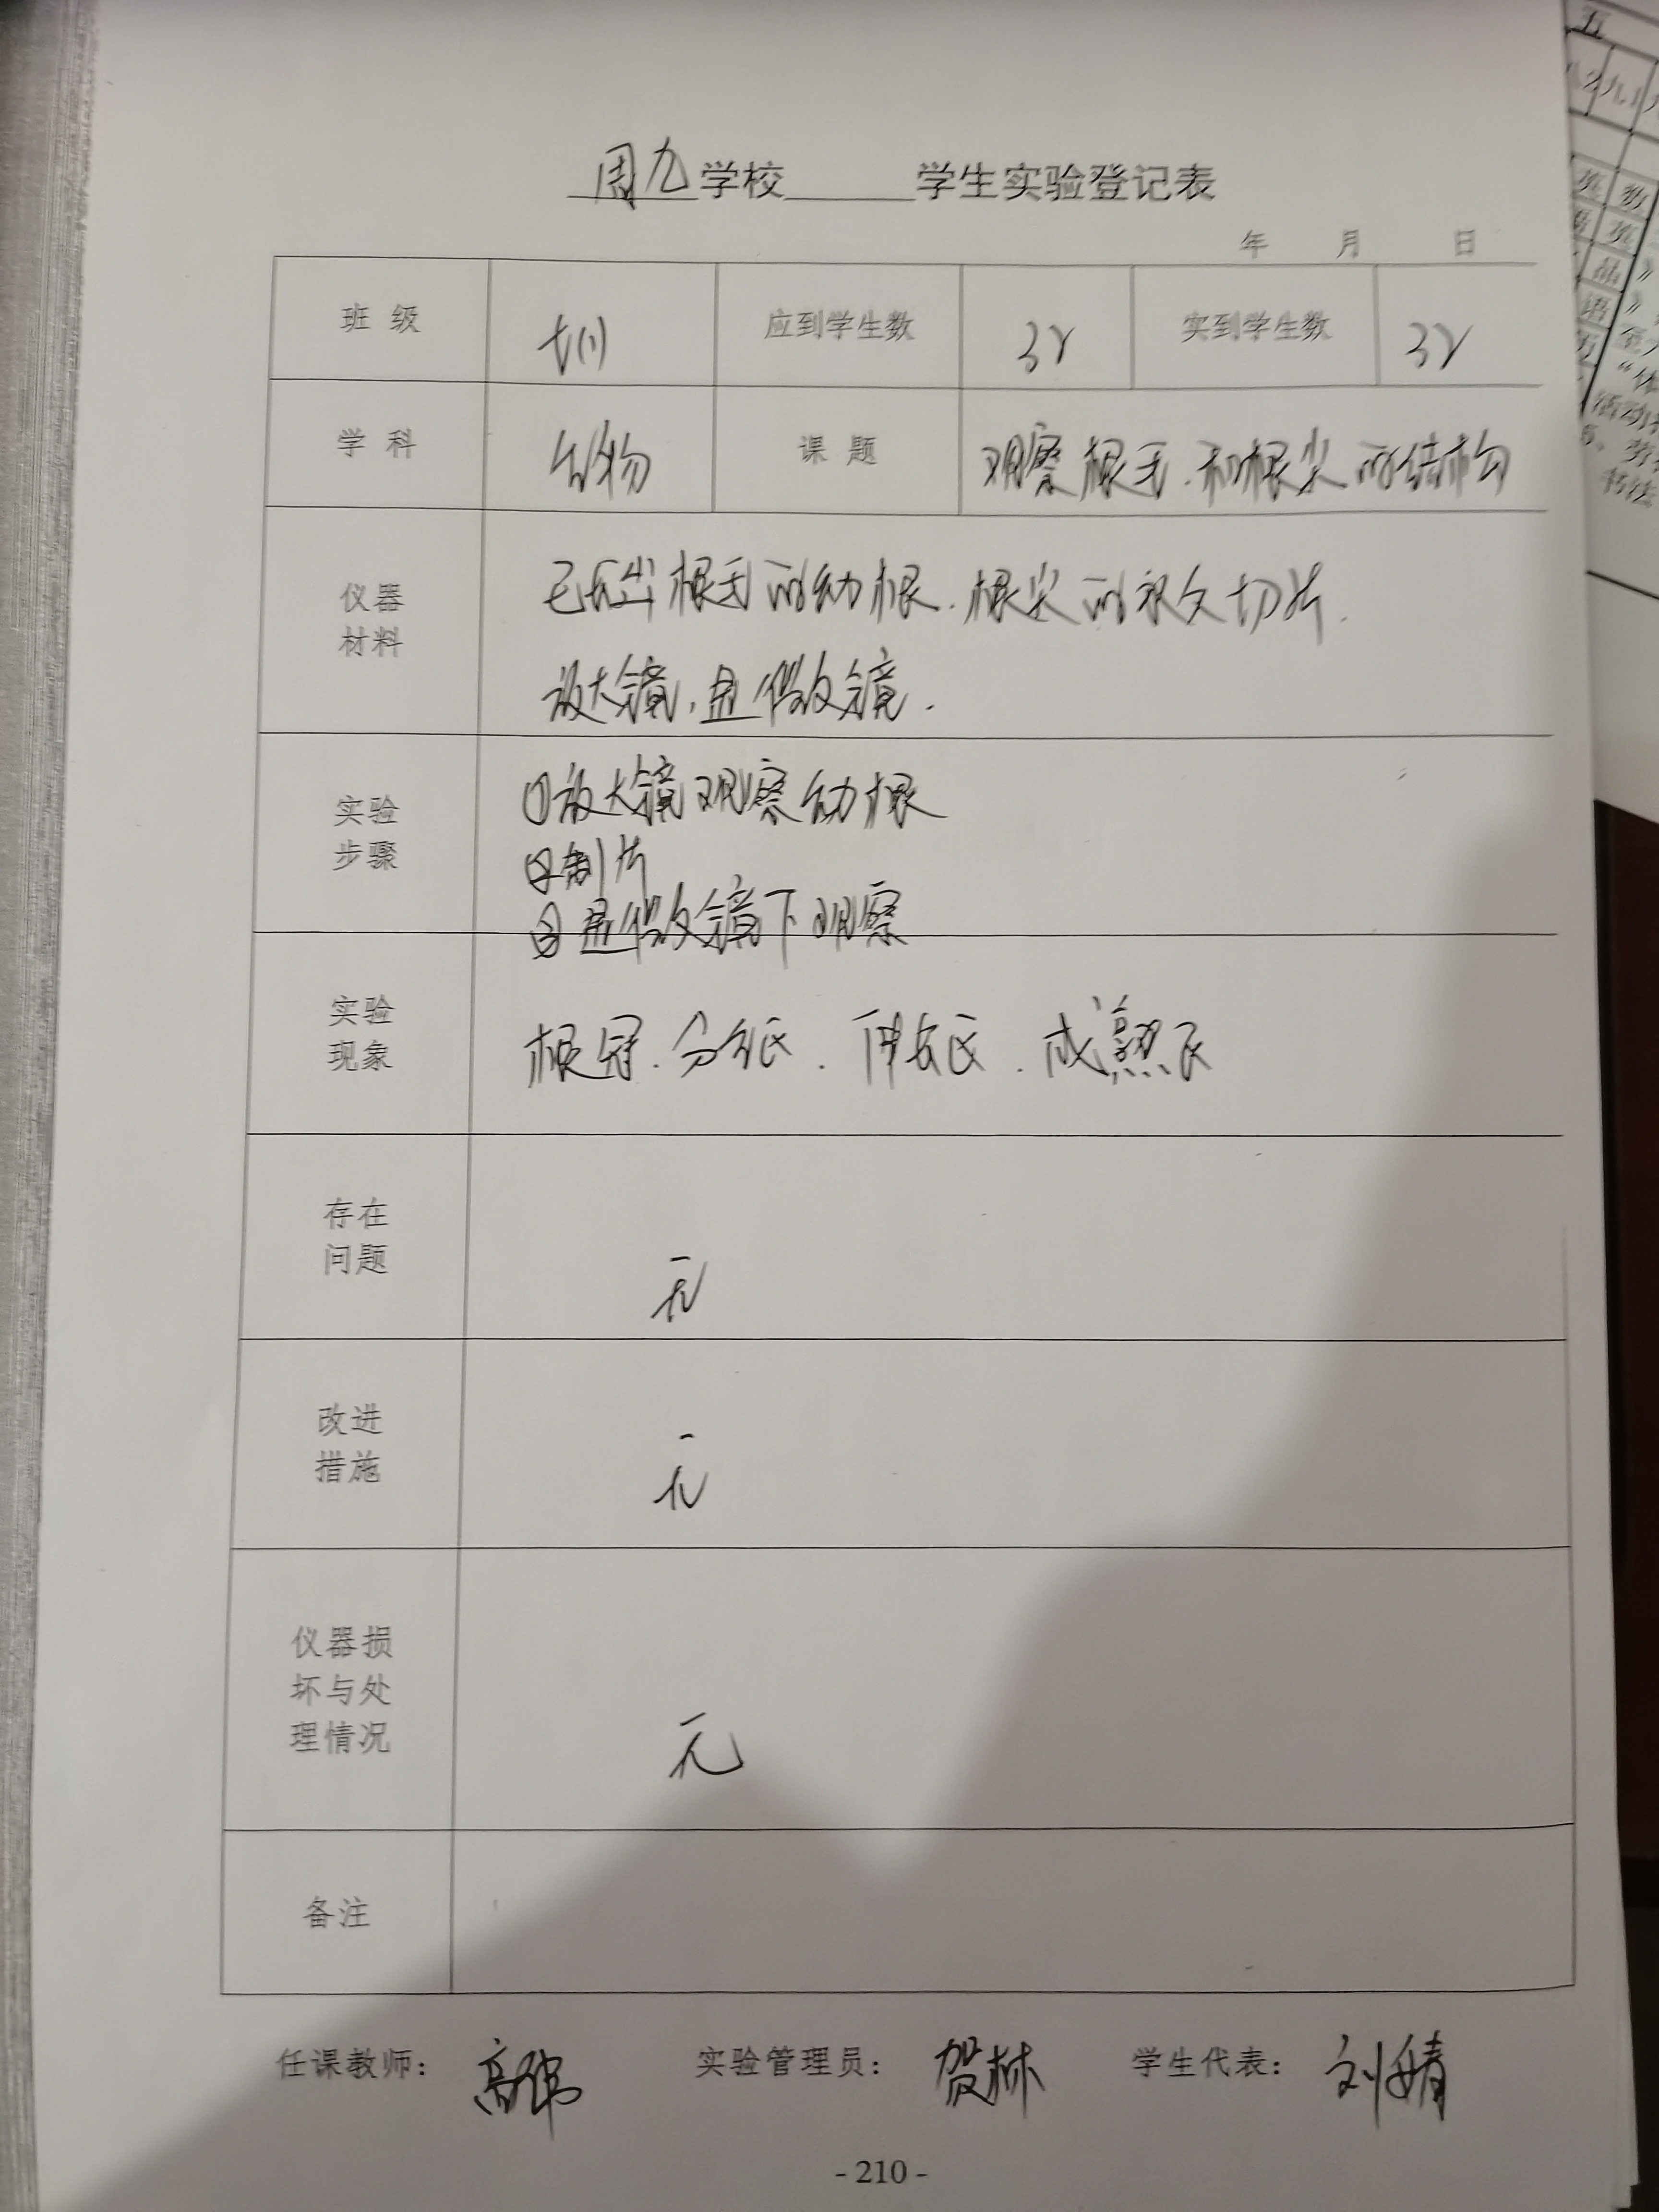 周九学校 学生实验登记表
年 月 日
班 级 七(1) 应到学生数 32 实到学生数 32
学 科 生物 课 题 观察根毛.和根尖的结构
仪器
材料
已长出根毛的幼根.根尖的永久切片.
放大镜,显微镜.
实验
步骤
①放大镜观察幼根
②制片
③显微镜下观察
实验
现象
根冠.分生区.伸长区.成熟区
存在
问题
无
改进
措施
无
仪器损
坏与处
理情况
无
备注
任课教师: 高 实验管理员: 贺林 学生代表: 刘婧
- 210 -
五